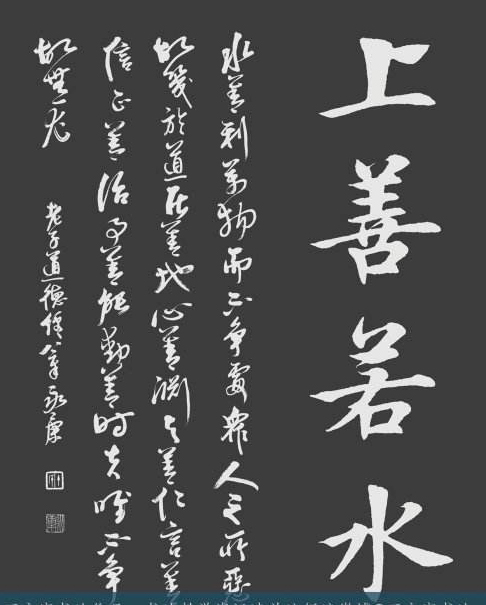 上善若水
水善利萬物而不争處衆人之所惡
故幾於道居善地心善渊与善仁言善
信正善治事善能動善时夫唯不争
故無尤
老子道德经八章永康